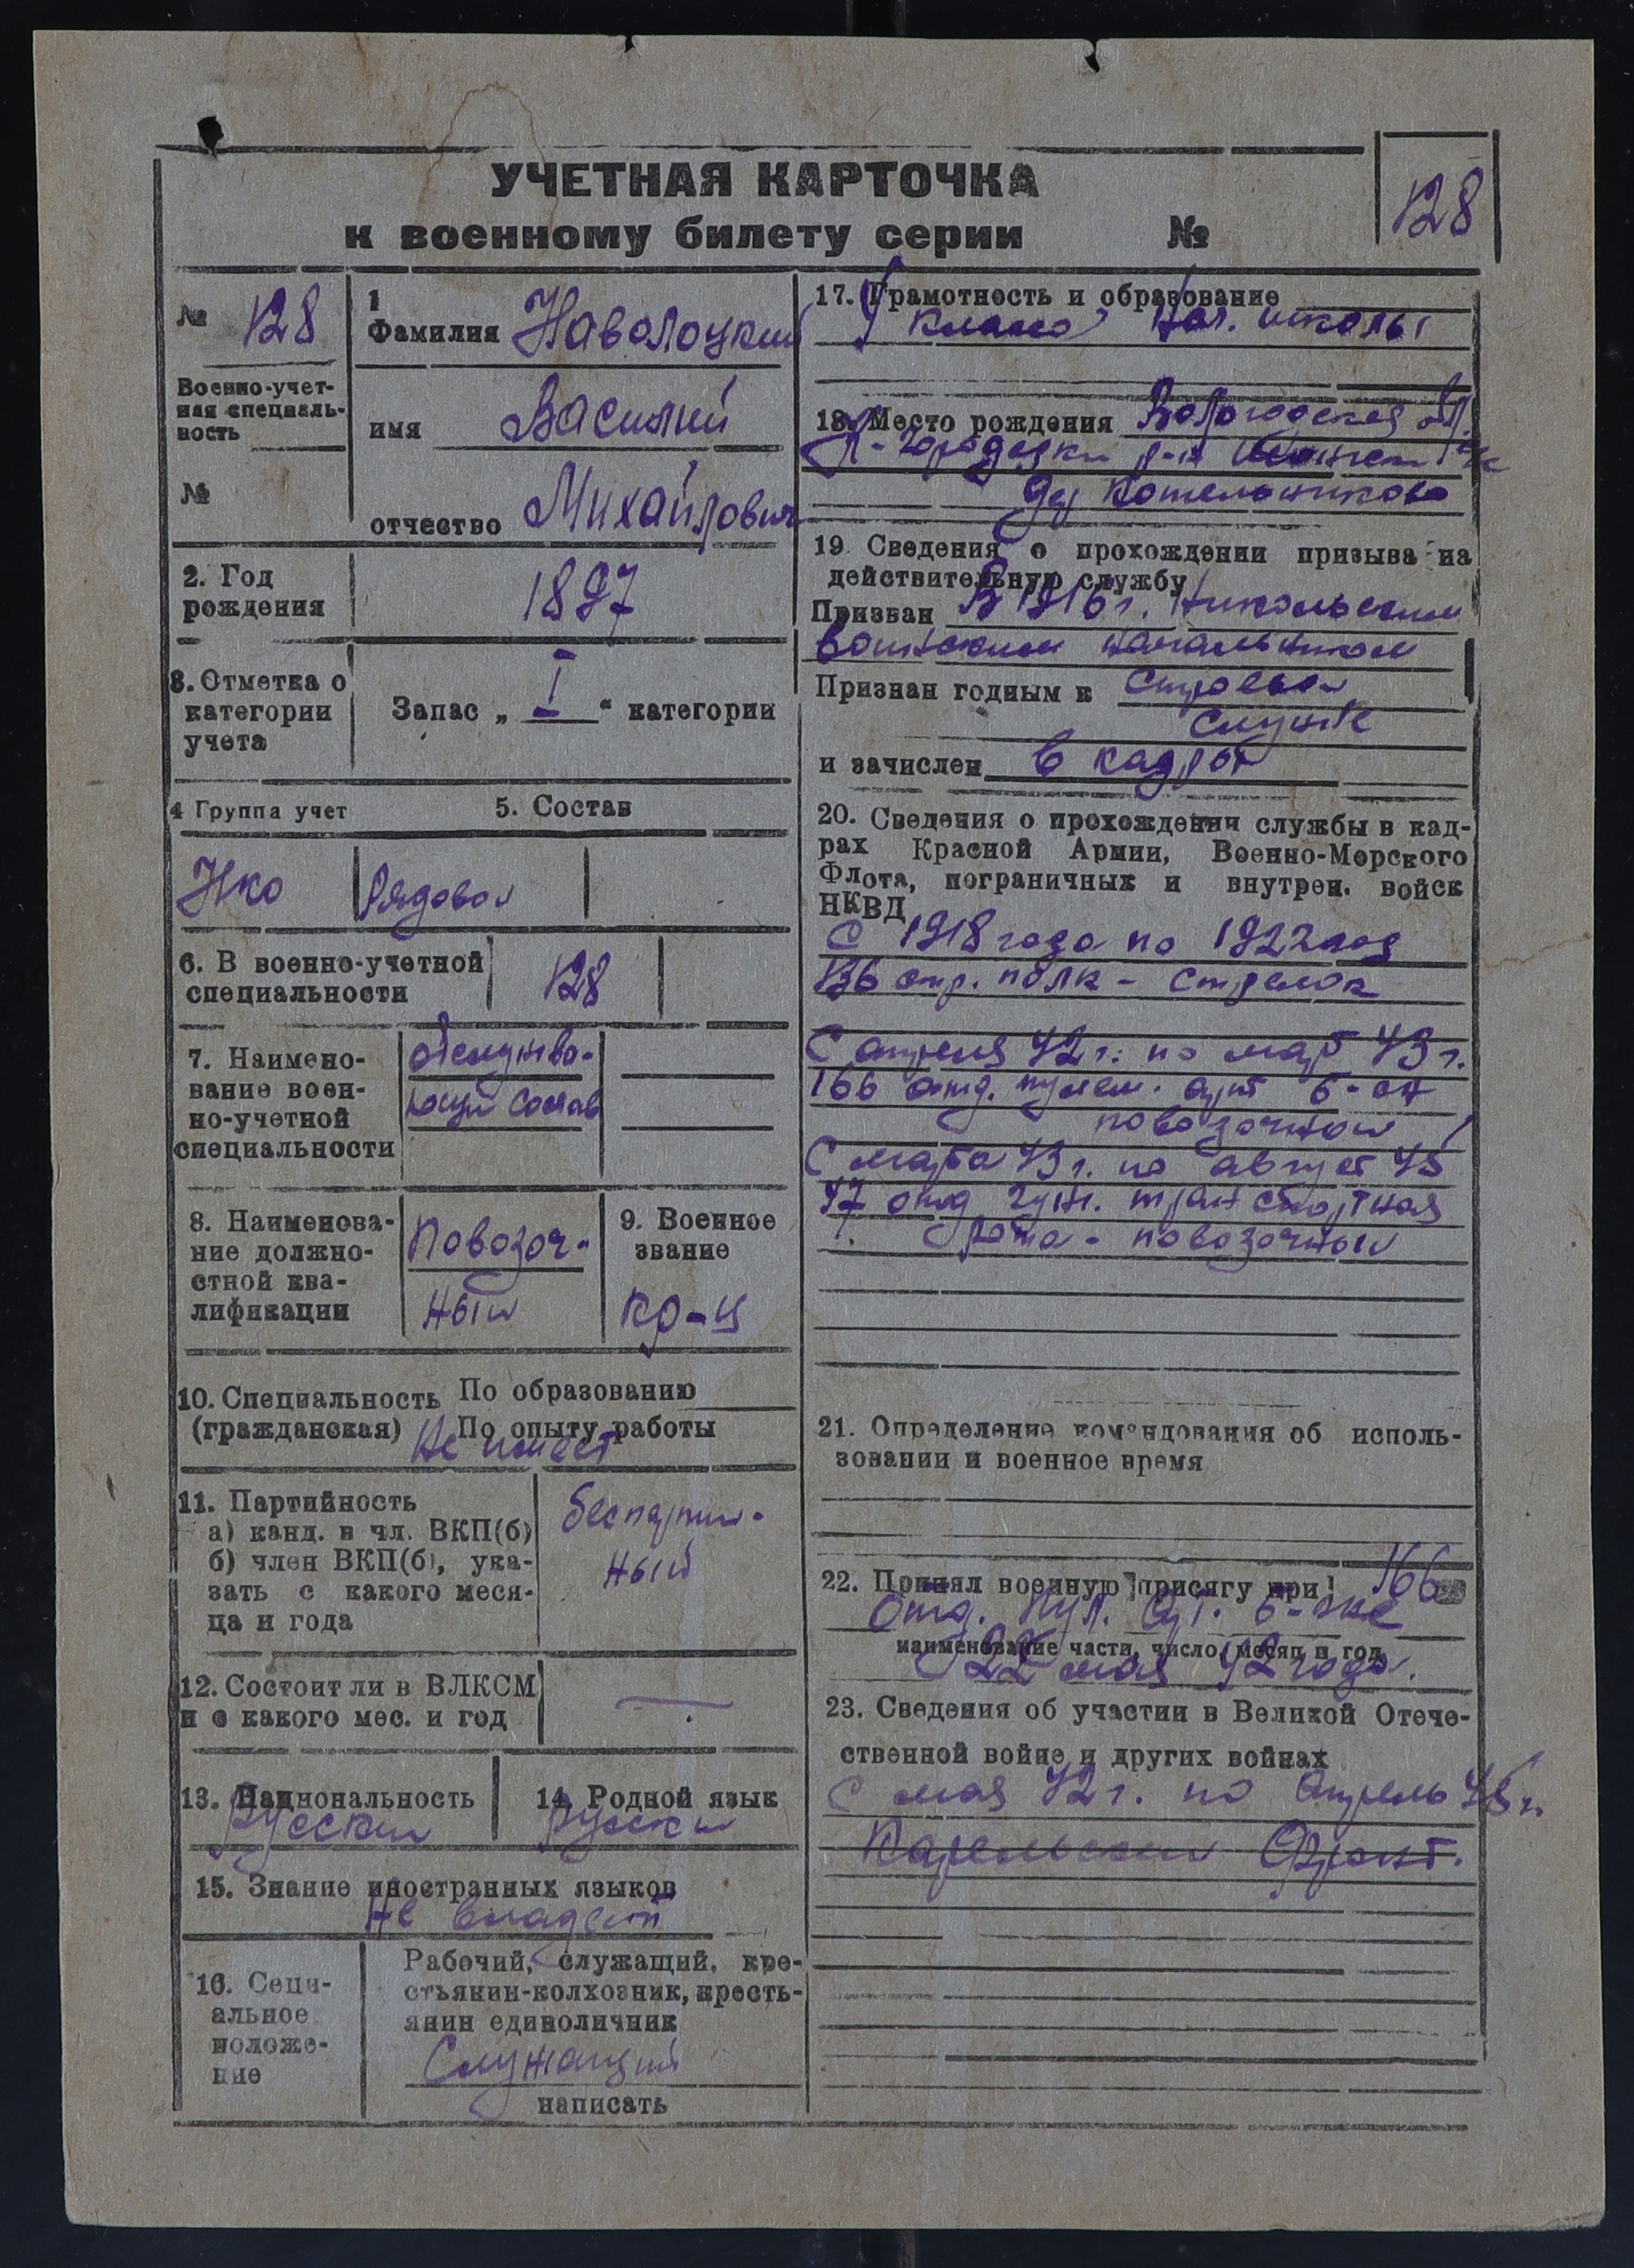 УЧЕТНАЯ КАРТОЧКА
к военному билету серии №
128
№ 128
Военно-учет-
ная специаль-
ность
№
1
Фамилия Наволоцкий
имя Василий
отчество Михайлович
2. Год
рождения
1897
3. Отметка о
категории
учета
Запас „ I “ категории
4 Группа учет
5. Состав
Нко
Рядовой
6. В военно-учетной
специальности
128
7. Наимено-
вание воен-
но-учетной
специальности
обслужива-
ющий состав
8. Наименова-
ние должно-
стной ква-
лификации
Повозоч-
ный
9. Военное
звание
кр-ц
10. Специальность По образованию
(гражданская) По опыту работы
Не имеет
11. Партийность
а) канд. в чл. ВКП(б)
б) член ВКП(б), ука-
зать с какого меся-
ца и года
беспартий-
ный
12. Состоит ли в ВЛКСМ
и с какого мес. и год
—
13. Национальность
Русский
14. Родной язык
русский
15. Знание иностранных языков
Не владеет
16. Соци-
альное
положе-
ние
Рабочий, служащий, кре-
стьянин-колхозник, кресть-
янин единоличник
Служащий
написать
17. Грамотность и образование
4 класса нач. школы
18. Место рождения Вологодская обл.
К-Городецки р-н
дер Котельниково
19. Сведения о прохождении призыва на
действительную службу
Призван В 1916 г. Никольским
воинским начальником
Признан годным к строевой
службе
и зачислен в кадры
20. Сведения о прохождении службы в кад-
рах Красной Армии, Военно-Морского
Флота, пограничных и внутрен. войск
НКВД
С 1918 года по 1922 год
136 стр. полк - стрелок
С апреля 42 г. по март 43 г.
166 отд. пулем. арт б-он
повозочный
С марта 43 г. по август 45
47 отд гуж. транспортная
рота - повозочный
21. Определение командования об исполь-
зовании и военное время
22. Принял военную присягу при 166
отд. пул. арт. б-оне
наименование части, число, месяц и год
22 мая 42 года.
23. Сведения об участии в Великой Отече-
ственной войне и других войнах
С мая 42 г. по апрель 45 г.
Карельский фронт.